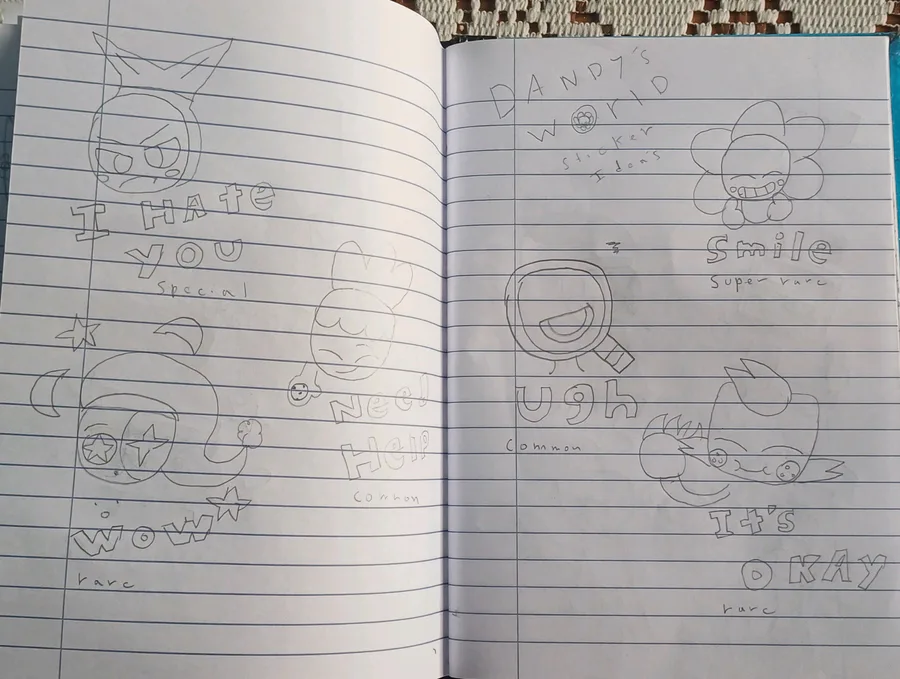 I HAte
you
special
Need
Help
common
WoW
rare
DANDY'S
WORlD
Sticker
Idea's
Smile
Super rare
ugh
common
It's
OKAy
rare